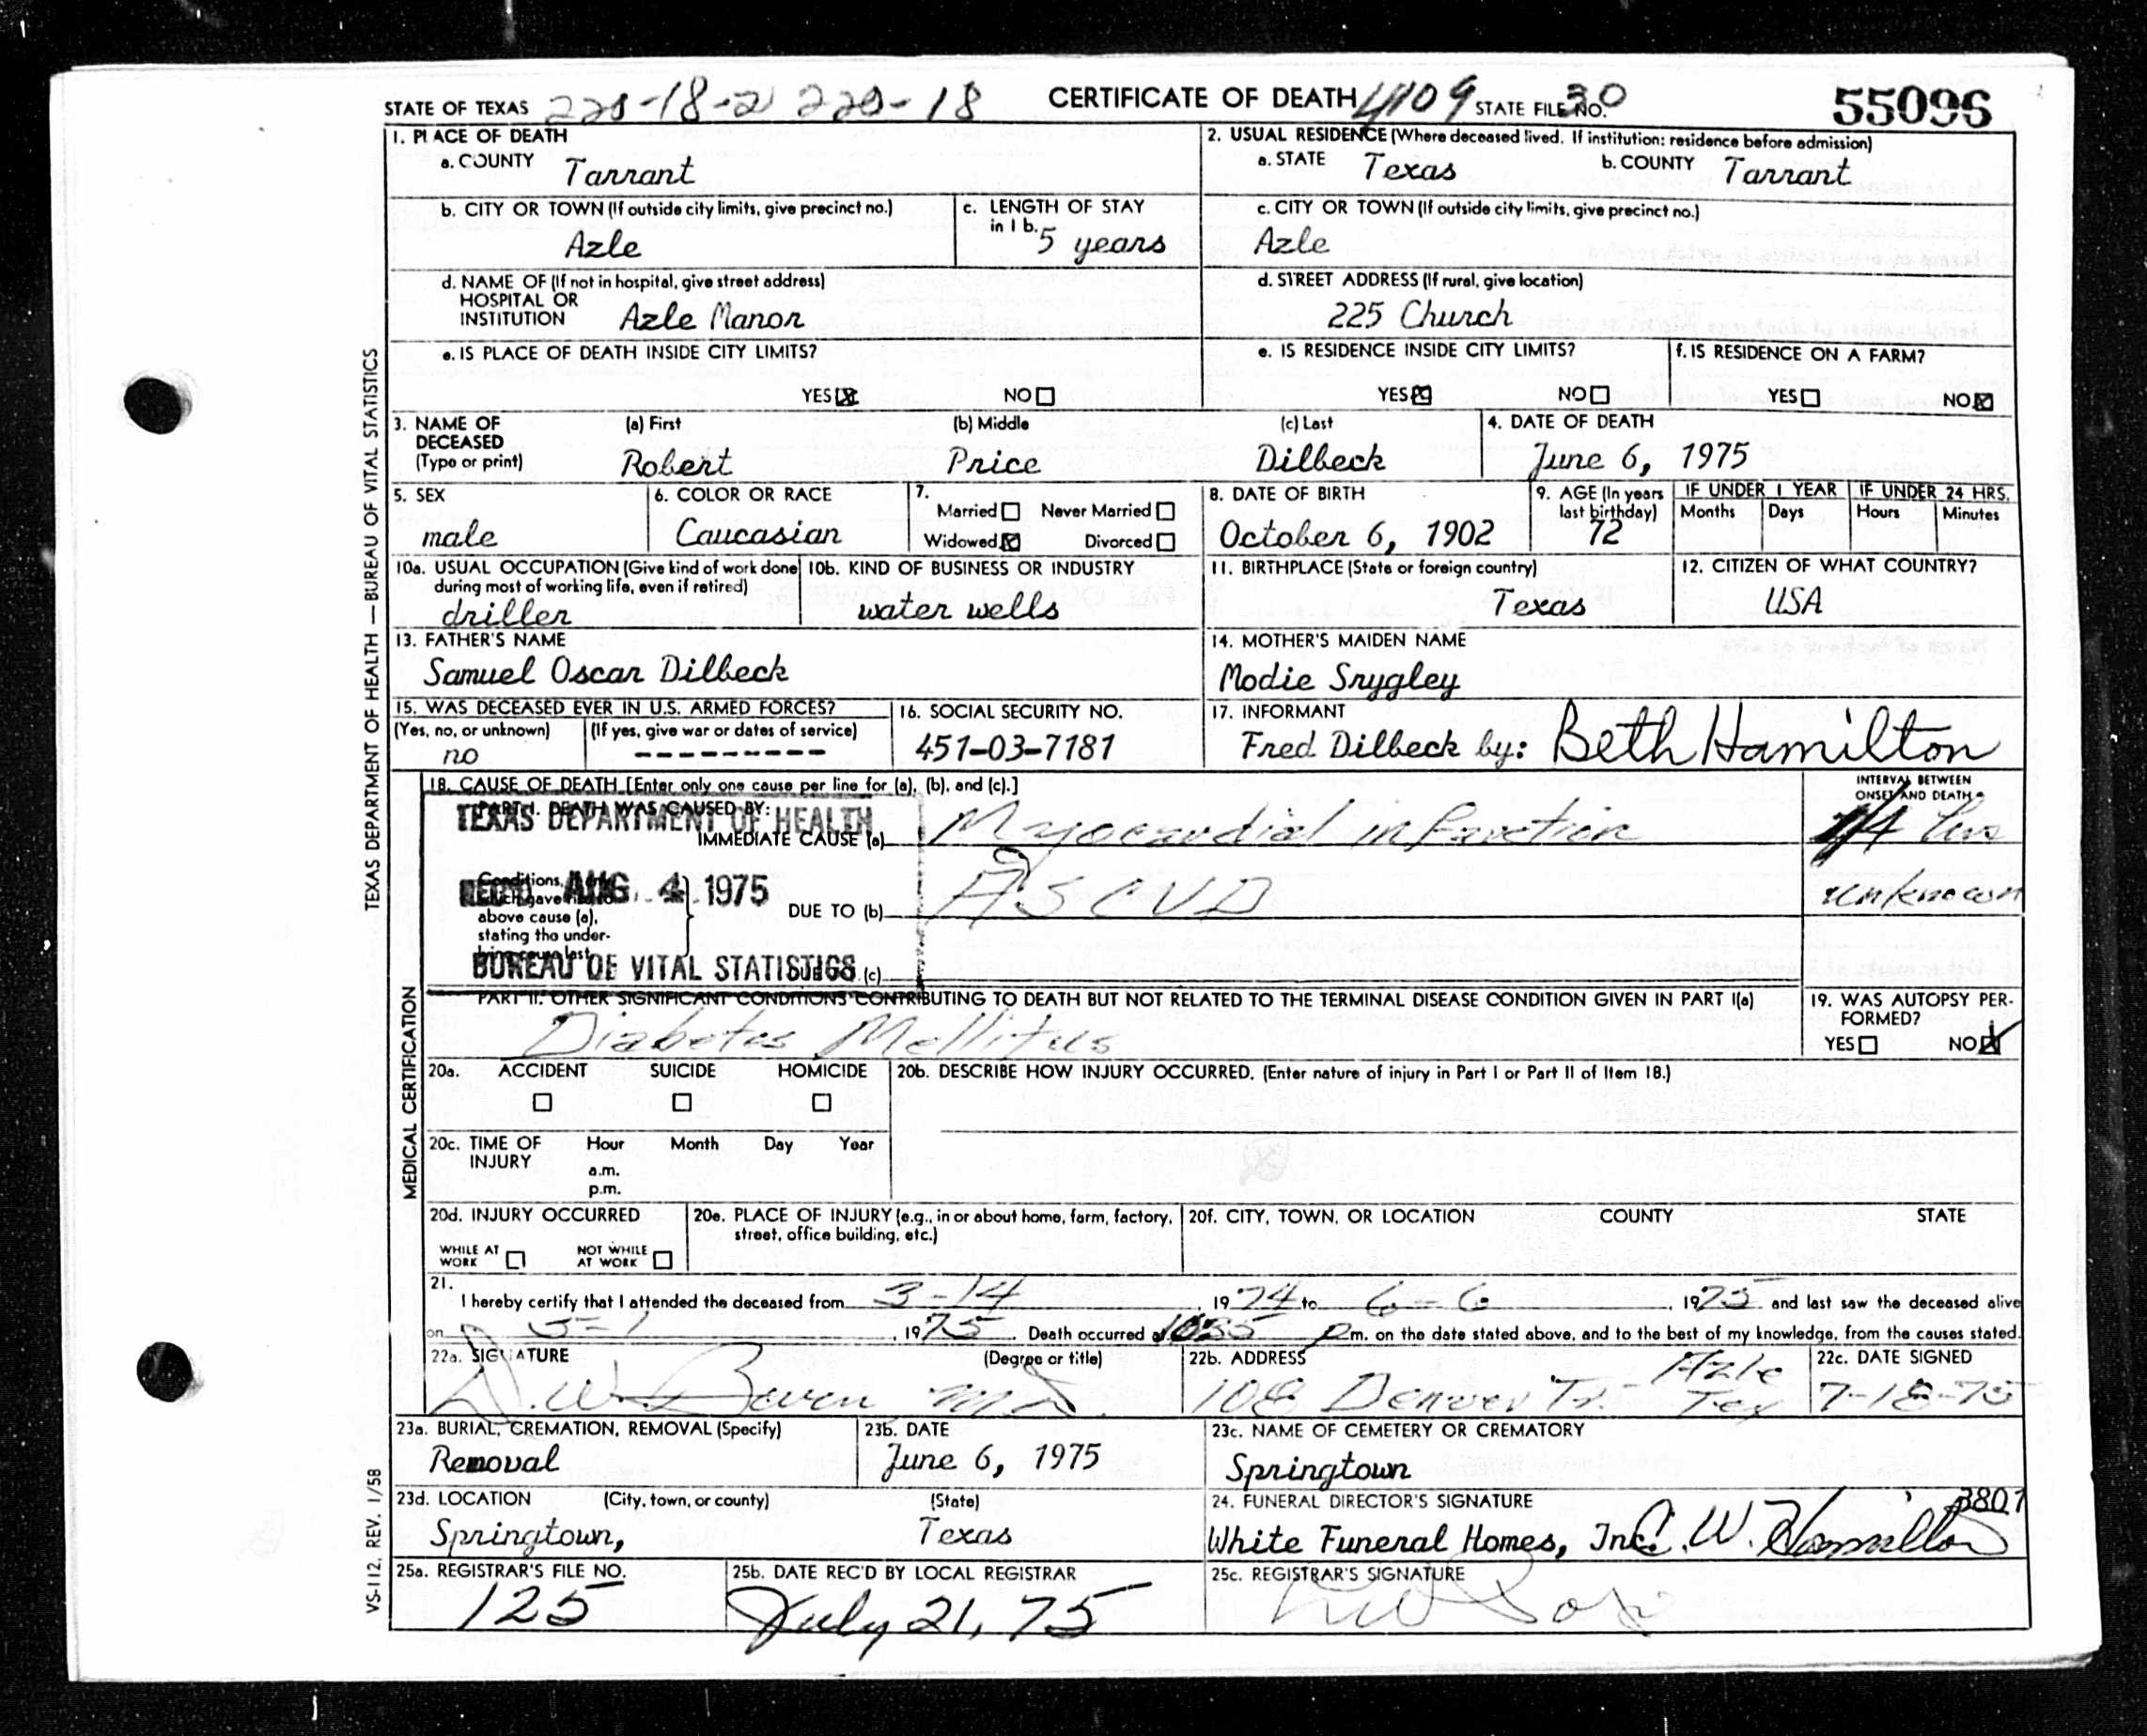 STATE OF TEXAS 220-18-2 220-18 CERTIFICATE OF DEATH 4109 STATE FILE NO. 30 55096
1. PLACE OF DEATH
a. COUNTY Tarrant
2. USUAL RESIDENCE (Where deceased lived. If institution: residence before admission)
a. STATE Texas b. COUNTY Tarrant
b. CITY OR TOWN (If outside city limits, give precinct no.)
Azle
c. LENGTH OF STAY
in 1 b. 5 years
c. CITY OR TOWN (If outside city limits, give precinct no.)
Azle
d. NAME OF (If not in hospital, give street address)
HOSPITAL OR
INSTITUTION Azle Manor
d. STREET ADDRESS (If rural, give location)
225 Church
e. IS PLACE OF DEATH INSIDE CITY LIMITS?
YES NO
e. IS RESIDENCE INSIDE CITY LIMITS?
YES NO
f. IS RESIDENCE ON A FARM?
YES NO
3. NAME OF
DECEASED
(Type or print)
(a) First (b) Middle (c) Last
Robert Price Dilbeck
4. DATE OF DEATH
June 6, 1975
5. SEX
male
6. COLOR OR RACE
Caucasian
7.
Married Never Married
Widowed Divorced
8. DATE OF BIRTH
October 6, 1902
9. AGE (In years
last birthday)
72
IF UNDER 1 YEAR
Months Days
IF UNDER 24 HRS.
Hours Minutes
10a. USUAL OCCUPATION (Give kind of work done
during most of working life, even if retired)
driller
10b. KIND OF BUSINESS OR INDUSTRY
water wells
11. BIRTHPLACE (State or foreign country)
Texas
12. CITIZEN OF WHAT COUNTRY?
USA
13. FATHER'S NAME
Samuel Oscar Dilbeck
14. MOTHER'S MAIDEN NAME
Modie Snygley
15. WAS DECEASED EVER IN U.S. ARMED FORCES?
(Yes, no, or unknown) (If yes, give war or dates of service)
no ---------
16. SOCIAL SECURITY NO.
451-03-7181
17. INFORMANT
Fred Dilbeck by: Beth Hamilton
18. CAUSE OF DEATH [Enter only one cause per line for (a), (b), and (c).]
INTERVAL BETWEEN
ONSET AND DEATH
PART I. DEATH WAS CAUSED BY:
TEXAS DEPARTMENT OF HEALTH
IMMEDIATE CAUSE (a) Myocardial infarction 1/4 hrs
Conditions,
REC'D AUG. 4 1975
which gave rise to
above cause (a),
stating the under-
lying cause last.
DUE TO (b) ASCVD unknown
BUREAU OF VITAL STATISTICS
DUE TO (c)
PART II. OTHER SIGNIFICANT CONDITIONS CONTRIBUTING TO DEATH BUT NOT RELATED TO THE TERMINAL DISEASE CONDITION GIVEN IN PART I(a)
Diabetes Mellitus
19. WAS AUTOPSY PER-
FORMED?
YES NO
20a. ACCIDENT SUICIDE HOMICIDE
20b. DESCRIBE HOW INJURY OCCURRED. (Enter nature of injury in Part I or Part II of Item 18.)
20c. TIME OF
INJURY
Hour Month Day Year
a.m.
p.m.
20d. INJURY OCCURRED
WHILE AT
WORK
NOT WHILE
AT WORK
20e. PLACE OF INJURY (e.g., in or about home, farm, factory,
street, office building, etc.)
20f. CITY, TOWN, OR LOCATION COUNTY STATE
21.
I hereby certify that I attended the deceased from 3-14, 1974 to 6-6, 1975 and last saw the deceased alive
on 5-1, 1975. Death occurred at 1035 p m. on the date stated above, and to the best of my knowledge, from the causes stated.
22a. SIGNATURE (Degree or title)
D.W. Bowen MD.
22b. ADDRESS
108 Denver Tr. Azle Tex
22c. DATE SIGNED
7-18-75
23a. BURIAL, CREMATION, REMOVAL (Specify)
Removal
23b. DATE
June 6, 1975
23c. NAME OF CEMETERY OR CREMATORY
Springtown
23d. LOCATION (City, town, or county) (State)
Springtown, Texas
24. FUNERAL DIRECTOR'S SIGNATURE 3807
White Funeral Homes, Inc. C. W. Hamilton
25a. REGISTRAR'S FILE NO.
125
25b. DATE REC'D BY LOCAL REGISTRAR
July 21, 75
25c. REGISTRAR'S SIGNATURE
TEXAS DEPARTMENT OF HEALTH — BUREAU OF VITAL STATISTICS
MEDICAL CERTIFICATION
VS-112, REV. 1/58